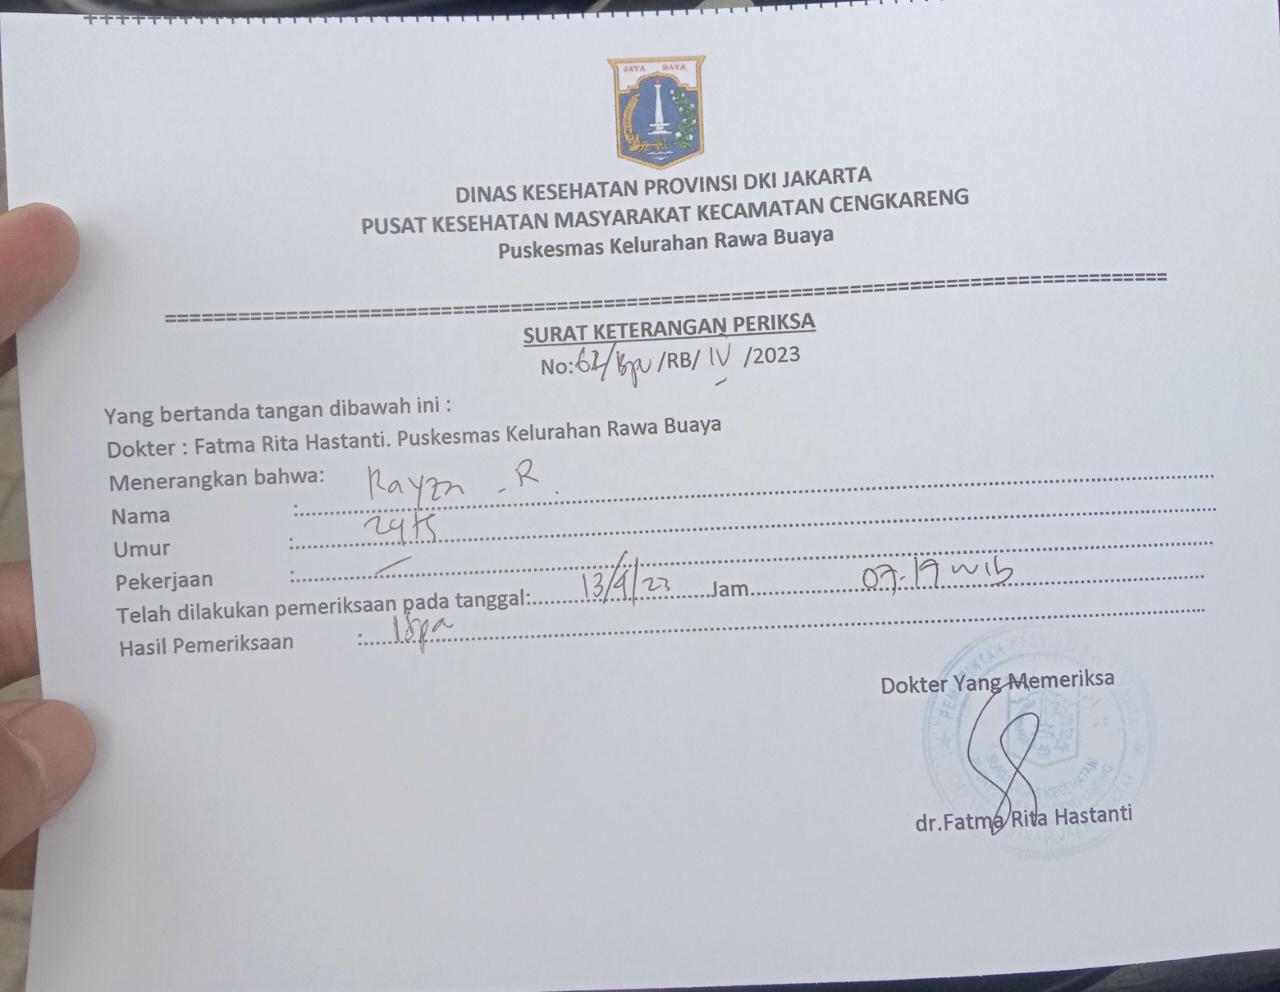 JAYA RAYA
DINAS KESEHATAN PROVINSI DKI JAKARTA
PUSAT KESEHATAN MASYARAKAT KECAMATAN CENGKARENG
Puskesmas Kelurahan Rawa Buaya
SURAT KETERANGAN PERIKSA
No: /RB/ IV /2023
Yang bertanda tangan dibawah ini :
Dokter : Fatma Rita Hastanti. Puskesmas Kelurahan Rawa Buaya
Menerangkan bahwa:
Nama : R
Umur :
Pekerjaan : —
Telah dilakukan pemeriksaan pada tanggal: 13/4/23 Jam 07-19 WIB
Hasil Pemeriksaan : Ispa
Dokter Yang Memeriksa
KESEHATAN
dr.Fatma Rita Hastanti